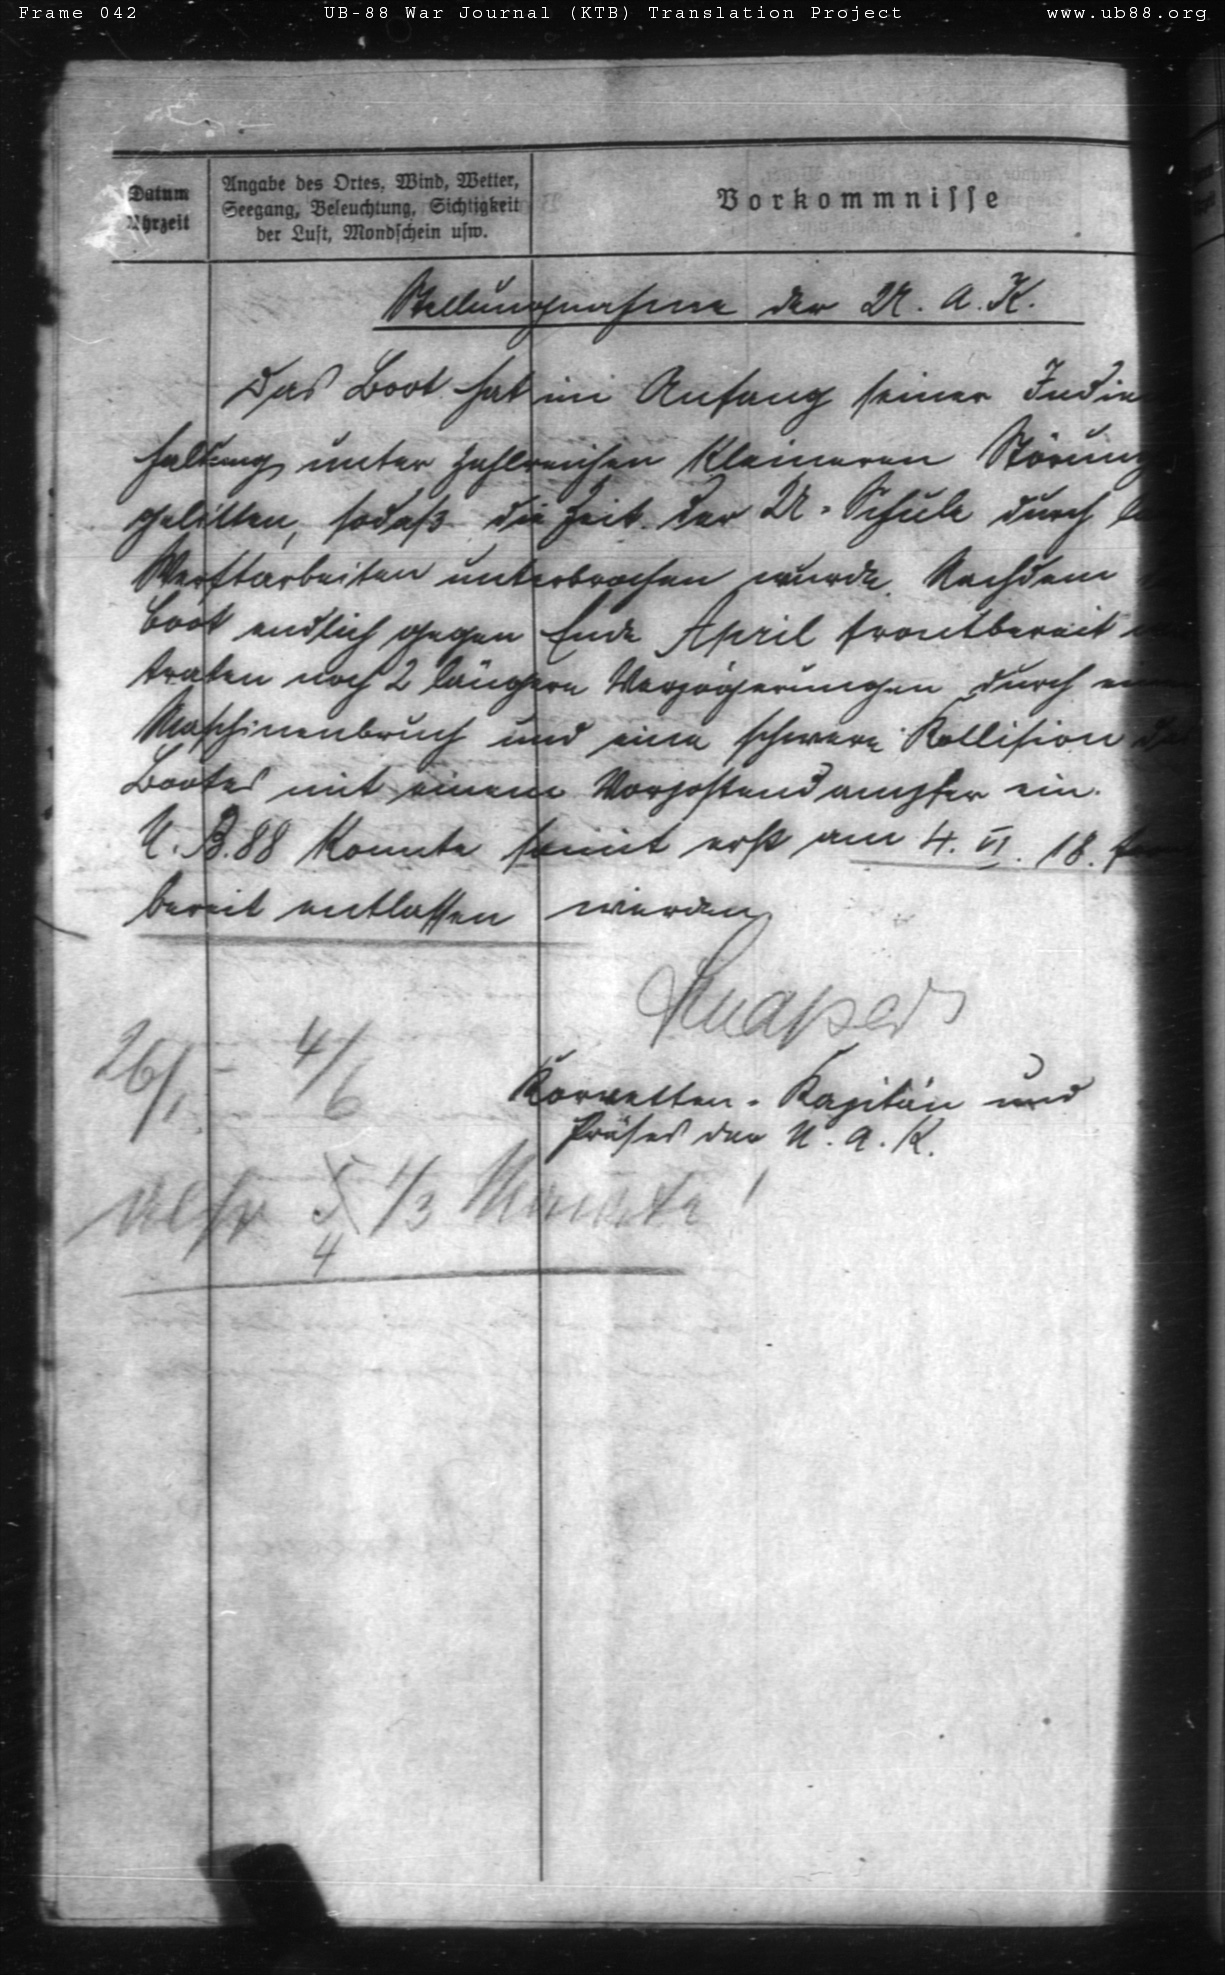 Frame 042 UB-88 War Journal (KTB) Translation Project www.ub88.org
Datum
Uhrzeit
Angabe des Ortes, Wind, Wetter,
Seegang, Beleuchtung, Sichtigkeit
der Luft, Mondschein usw.
Vorkommnisse
Stellungnahme der U. A. K.
Das Boot hat im Anfang seiner Indien
haltung unter zahlreichen kleineren Störung
gelitten, sodaß die Zeit der U-Schule durch
Werftarbeiten unterbrochen wurde. Nachdem
Boot endlich gegen Ende April frontbereit
traten noch 2 längere Verzögerungen durch einen
Maschinenbruch und eine schwere Kollision des
Bootes mit einem Vorpostendampfer ein.
U.B.88 konnte somit erst am 4. VI. 18.
bereit entlassen werden
Korvetten-Kapitän und
Präses der U. A. K.
26/1 - 4/6
also 4 1/3 Monate!